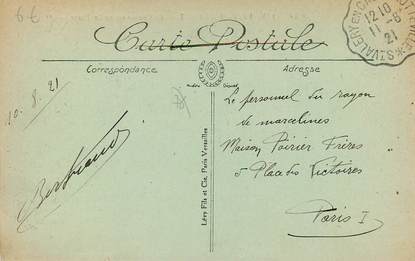 Carte Postale
Correspondance
Adresse
10. 8. 21
Bertrand
Lévy Fils et Cie, Paris Versailles
Le personnel du rayon
de marcelines
Maison Poirier Frères
5 Place des Victoires
Paris I
S.T VALERY EN C
12 10
11 - 8
21